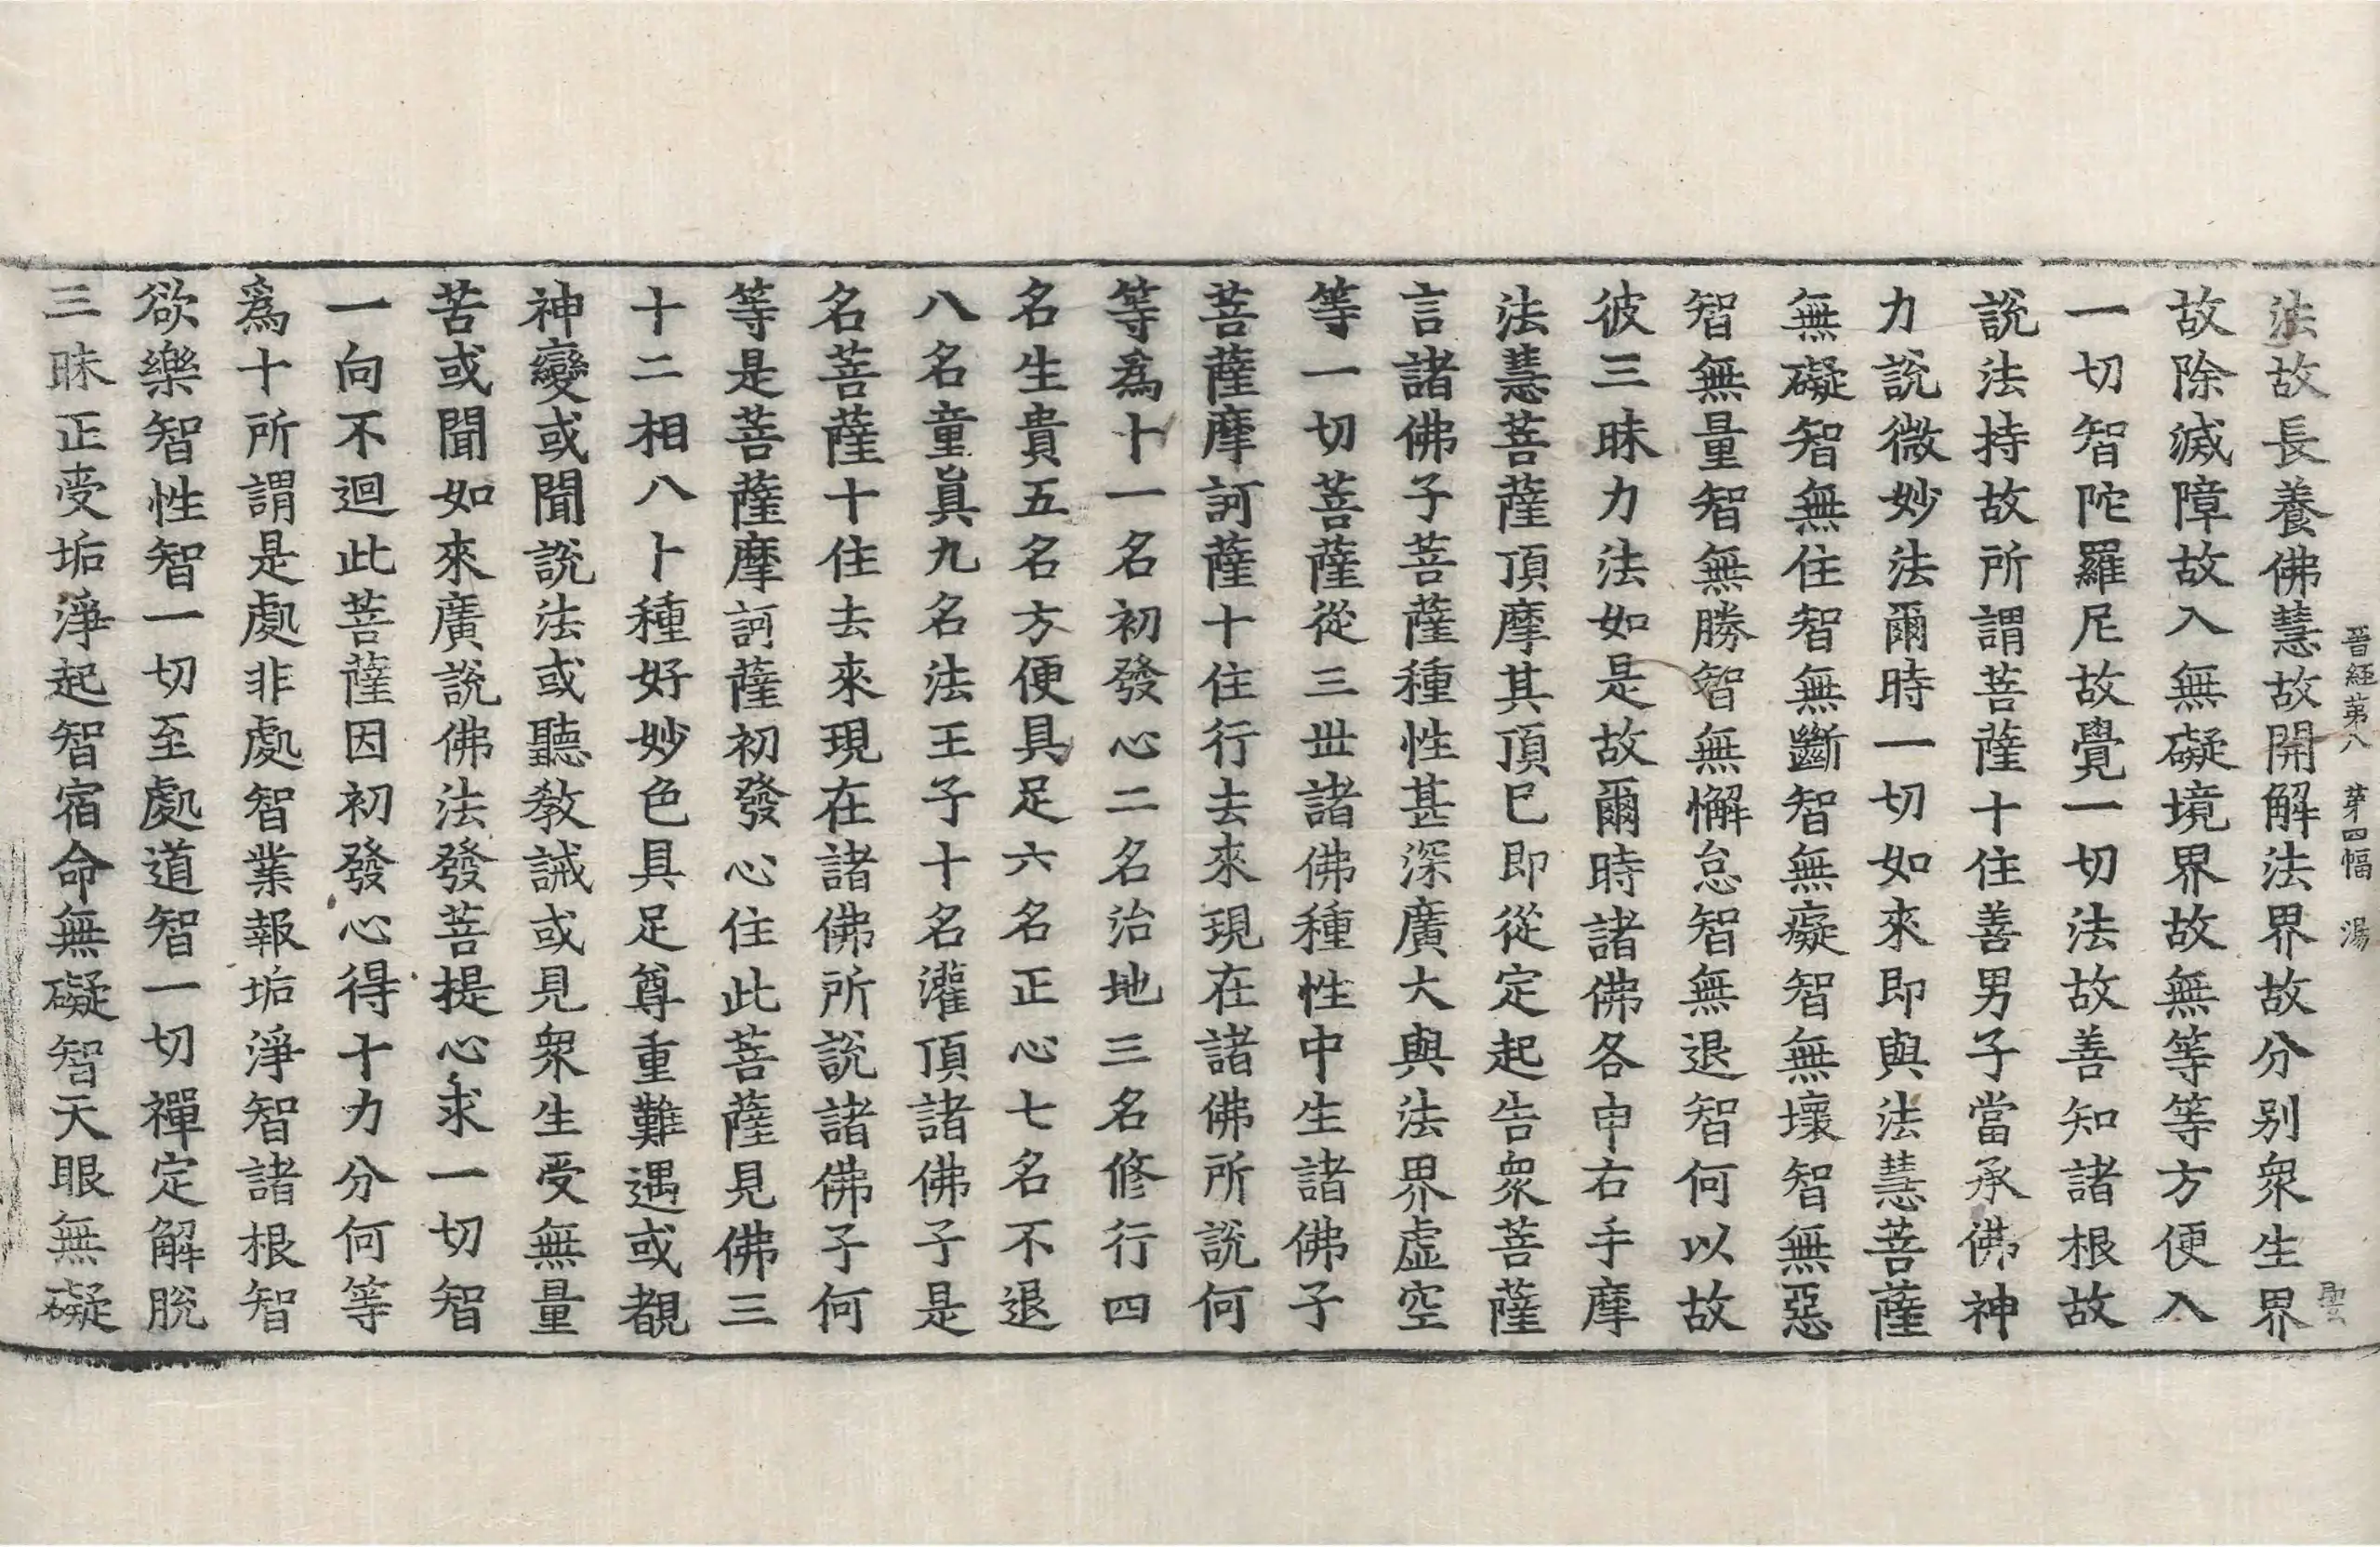 晉經第八　第四幅　湯
曇
法故長養佛慧故開解法界故分别衆生界
故除滅障故入無礙境界故無等等方便入
一切智陀羅尼故覺一切法故善知諸根故
説法持故所謂菩薩十住善男子當承佛神
力説微妙法爾時一切如來即與法慧菩薩
無礙智無住智無斷智無癡智無壞智無惡
智無量智無勝智無懈怠智無退智何以故
彼三昧力法如是故爾時諸佛各申右手摩
法慧菩薩頂摩其頂已即從定起告衆菩薩
言諸佛子菩薩種性甚深廣大與法界虚空
等一切菩薩從三世諸佛種性中生諸佛子
菩薩摩訶薩十住行去來現在諸佛所説何
等爲十一名初發心二名治地三名修行四
名生貴五名方便具足六名正心七名不退
八名童眞九名法王子十名灌頂諸佛子是
名菩薩十住去來現在諸佛所説諸佛子何
等是菩薩摩訶薩初發心住此菩薩見佛三
十二相八十種好妙色具足尊重難遇或覩
神變或聞説法或聽教誡或見衆生受無量
苦或聞如來廣説佛法發菩提心求一切智
一向不迴此菩薩因初發心得十力分何等
爲十所謂是處非處智業報垢淨智諸根智
欲樂智性智一切至處道智一切禪定解脱
三昧正受垢淨起智宿命無礙智天眼無礙